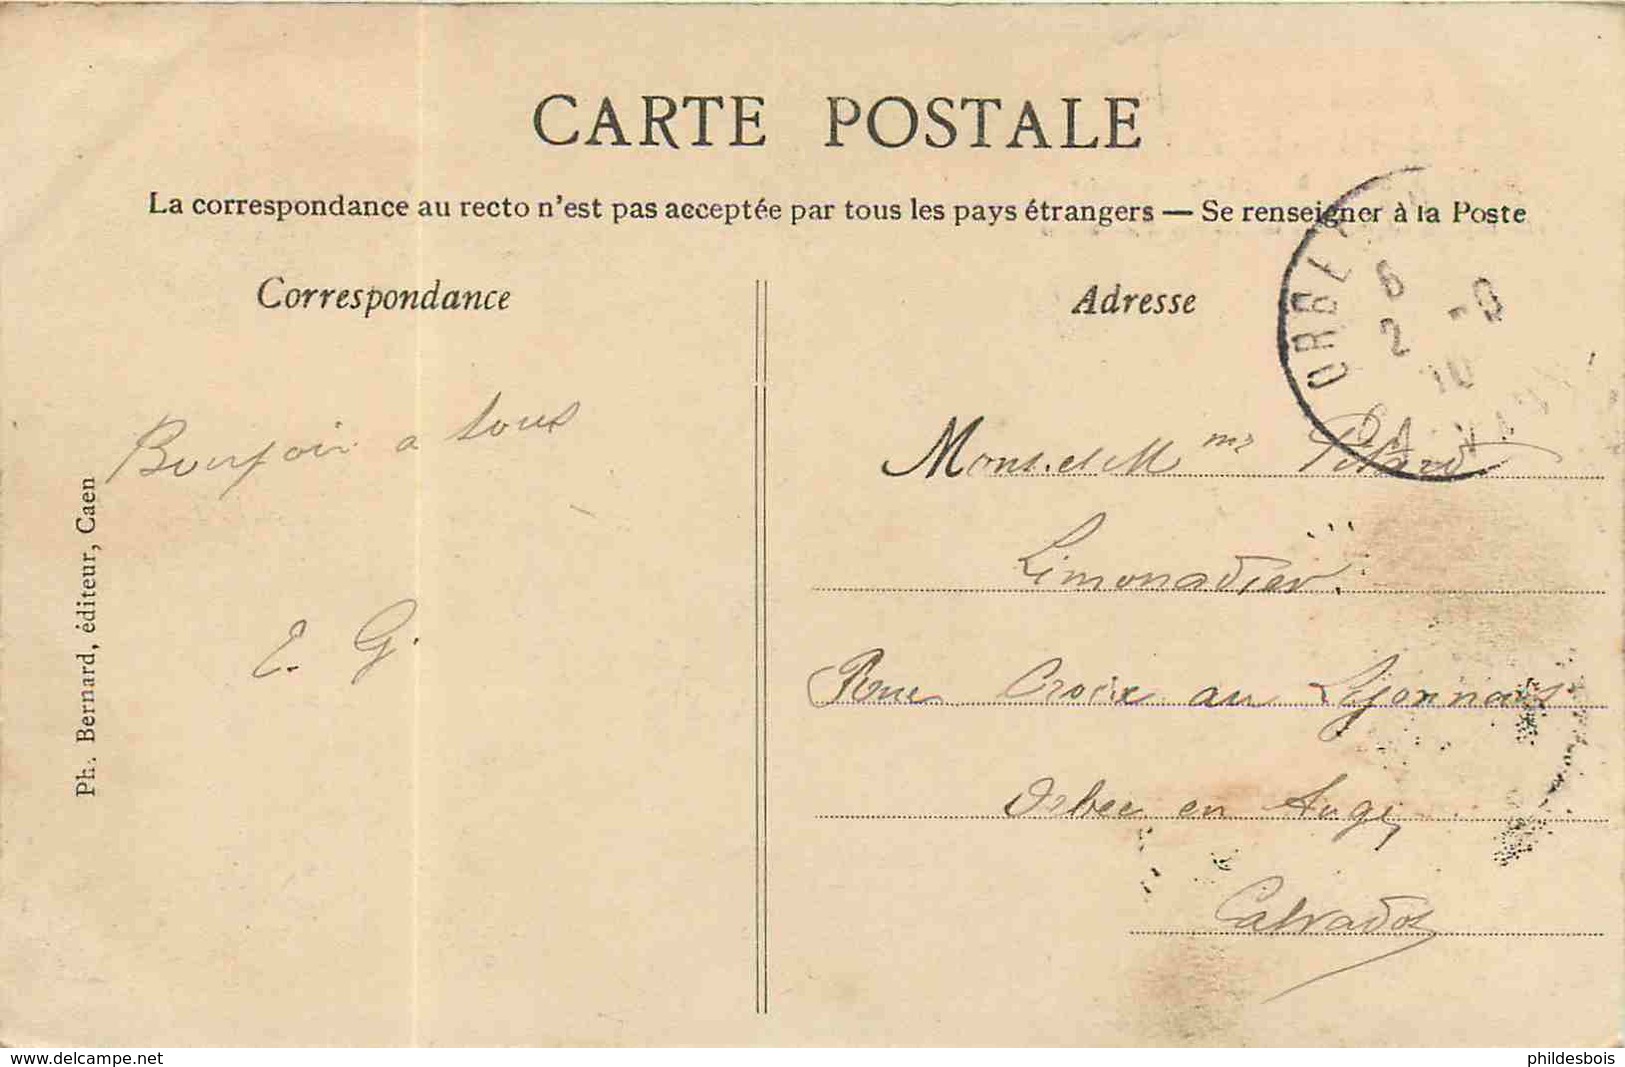 CARTE POSTALE
La correspondance au recto n'est pas acceptée par tous les pays étrangers — Se renseigner à la Poste
Correspondance
Adresse
ORBEC
6
2 -9
10
Bonjoir a tous
E. G.
Mons. et M
Limonadier
Rue Croix au Lyonnais
Orbec en Auge
Calvados
Ph. Bernard, éditeur, Caen
www.delcampe.net
phildesbois